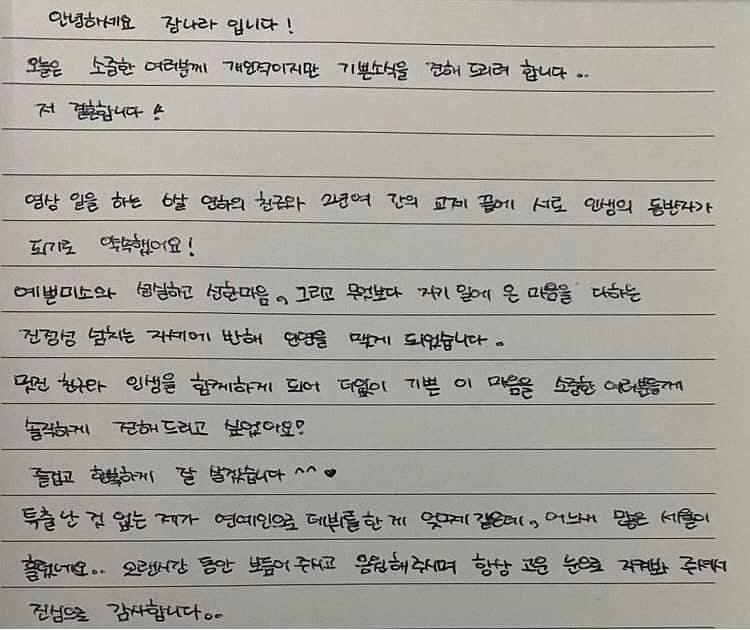 안녕하세요 장나라 입니다!
오늘은 소중한 여러분께 개인적이지만 기쁜소식을 전해 드리려 합니다..
저 결혼합니다!
영상 일을 하는 6살 연하의 친구와 2년여 간의 교제 끝에 서로 인생의 동반자가
되기로 약속했어요!
예쁜미소와 성실하고 선한마음, 그리고 무엇보다 자기 일에 온 마음을 다하는
진정성 넘치는 자세에 반해 인연을 맺게 되었습니다.
멋진 친구와 인생을 함께하게 되어 더없이 기쁜 이 마음을 소중한 여러분들께
솔직하게 전해드리고 싶었어요!
즐겁고 행복하게 잘 살겠습니다 ^^ ♥
특출난 것 없는 제가 연예인으로 데뷔를 한 게 엊그제 같은데, 어느새 많은 세월이
흘렀네요.. 오랜시간 동안 보듬어 주시고 응원해주시며 항상 고운 눈으로 지켜봐 주셔서
진심으로 감사합니다..